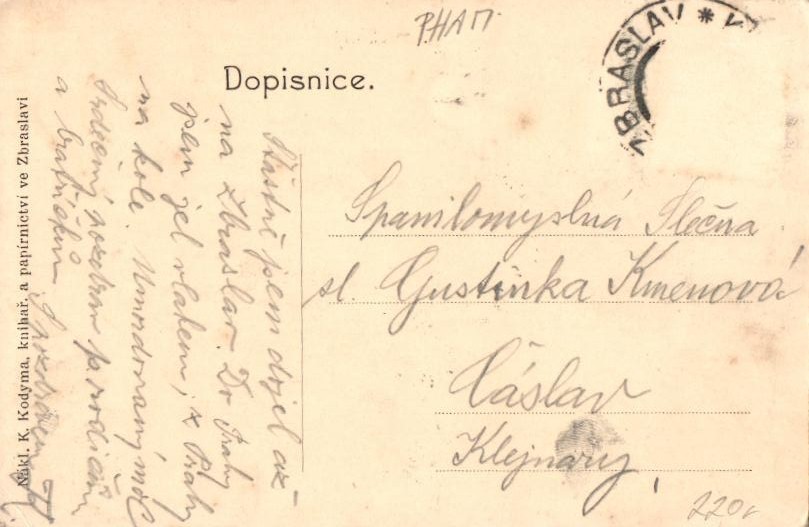 PHAM
BRASLAV * V
Dopisnice.
Nákl. K. Kodyma, knihař. a papírnictví ve Zbraslavi
Šťastně jsem dojel až
na Zbraslav. Do Prahy
jsem jel vlakem, z Prahy
na kole. Umordovaný moc
Srdečný pozdrav p. rodičům
a bratříčkům. S pozdravem
Spanilomyslná Slečna
sl. Gustinka Kmenová
Čáslav
Klejnary
220,